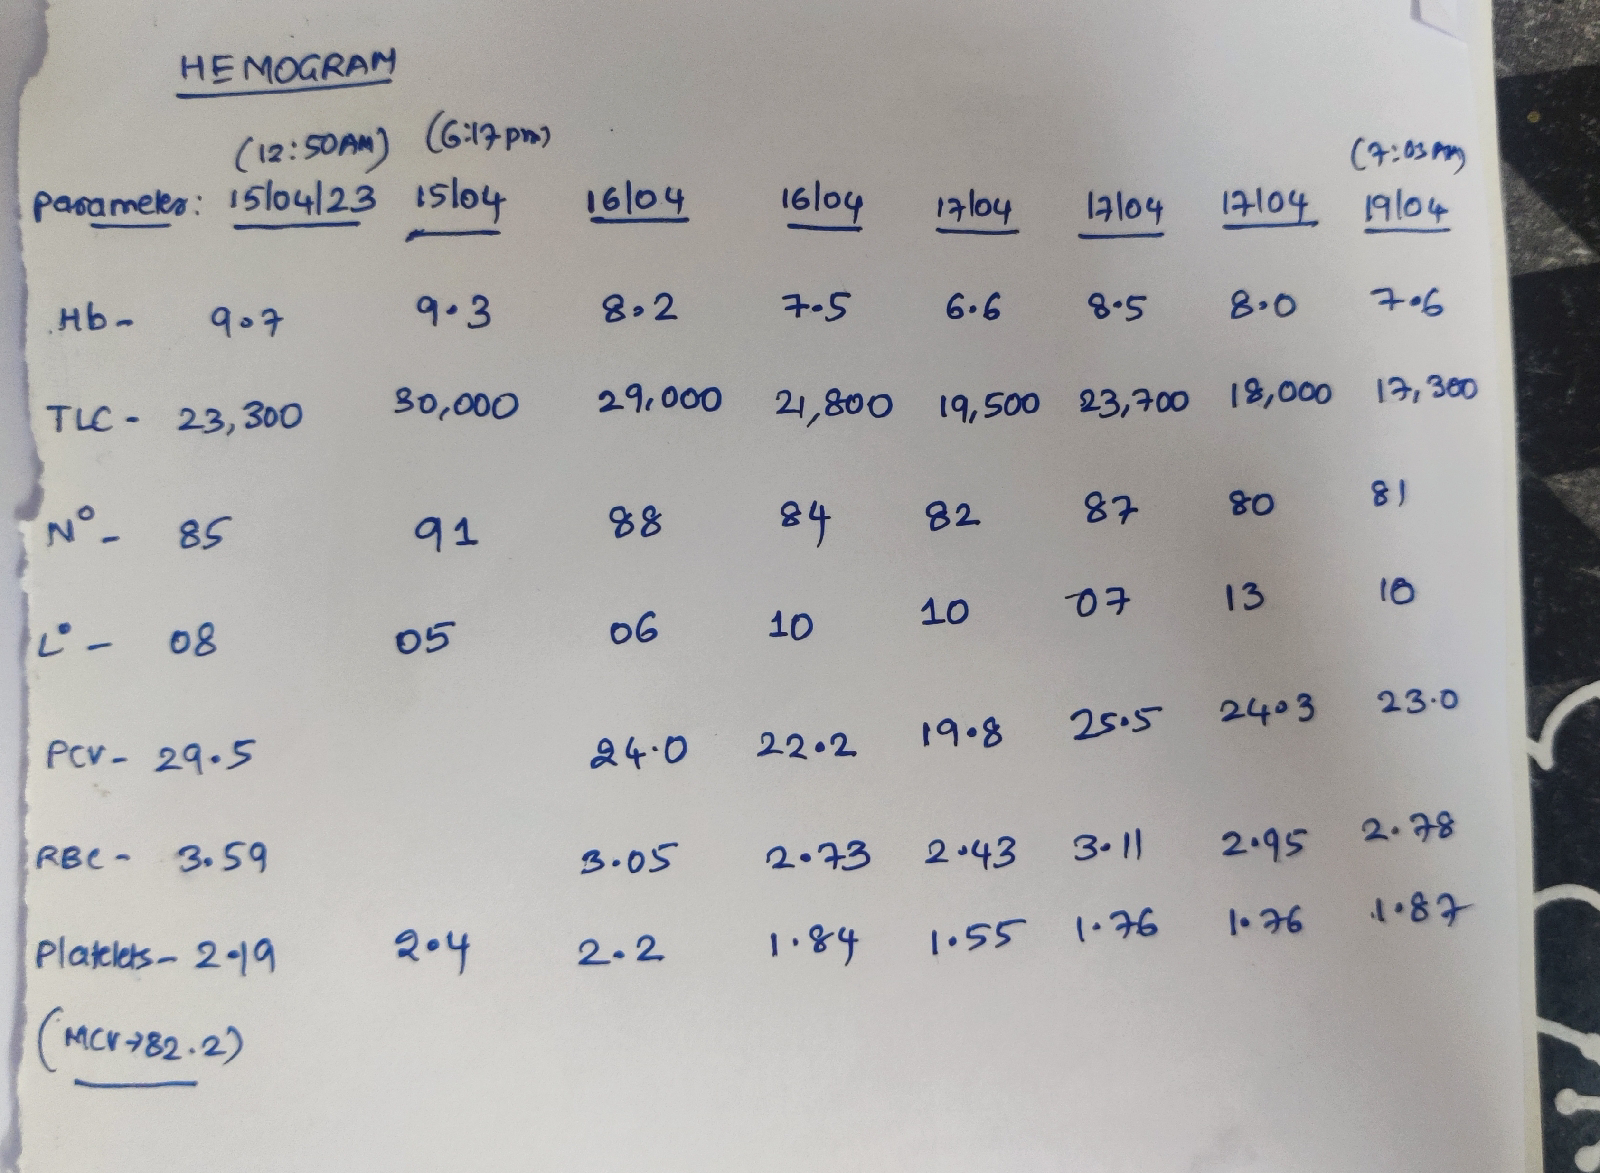 HEMOGRAM
(12:50AM) (6:17pm) (7:03AM)
Parameter: 15/04/23 15/04 16/04 16/04 17/04 17/04 17/04 19/04
Hb- 9.7 9.3 8.2 7.5 6.6 8.5 8.0 7.6
TLC- 23,300 30,000 29,000 21,800 19,500 23,700 18,000 17,300
N°- 85 91 88 84 82 87 80 81
L°- 08 05 06 10 10 07 13 10
PCV- 29.5 24.0 22.2 19.8 25.5 24.3 23.0
RBC- 3.59 3.05 2.73 2.43 3.11 2.95 2.78
Platelets- 2.19 2.4 2.2 1.84 1.55 1.76 1.76 1.87
(MCV→82.2)